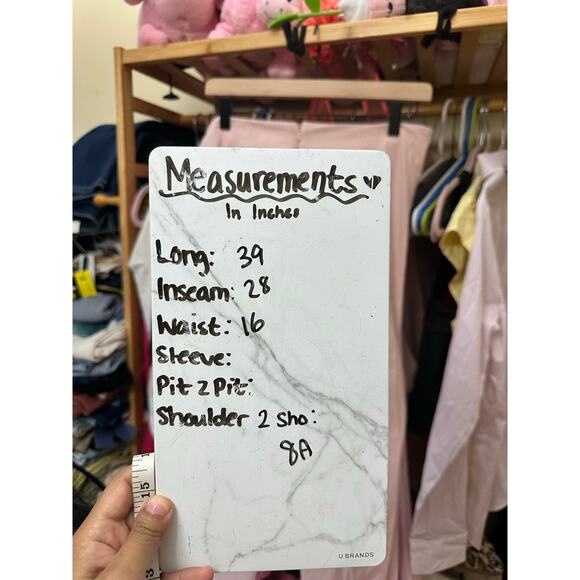 Measurements
In Inches
Long: 39
Inseam: 28
Waist: 16
Sleeve:
Pit 2 Pit:
Shoulder 2 Sho:
8A
U BRANDS
15